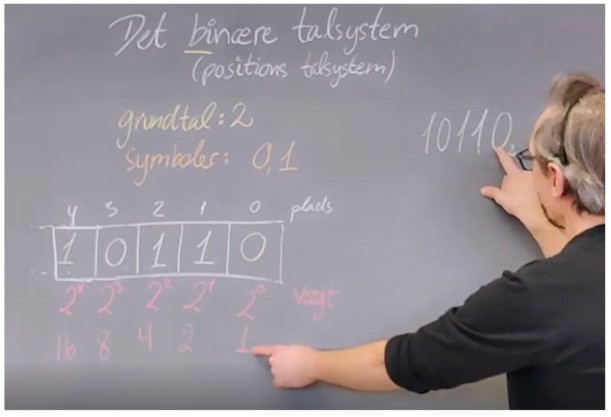 Det binære talsystem
(positions talsystem)
grundtal: 2
symboler: 0,1
10110
4 3 2 1 0 plads
1 0 1 1 0
2⁴ 2³ 2² 2¹ 2⁰ vægt
16 8 4 2 1